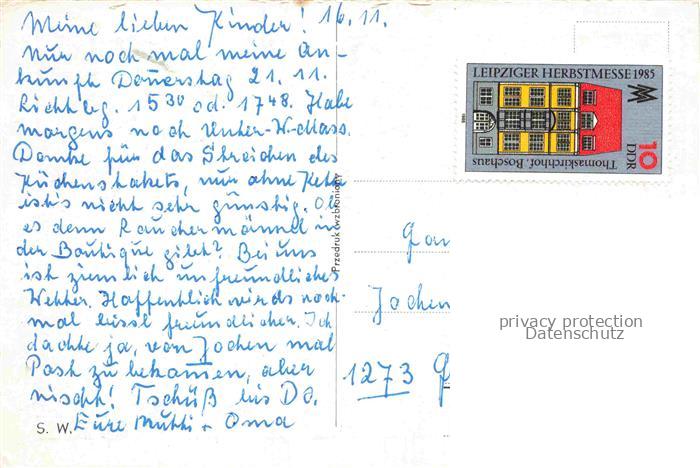 Meine lieben Kinder! 16.11.
Nur noch mal meine An-
kunft Donnerstag 21.11.
Lichtbg. 15³⁰ od. 17⁴⁸. Habe
morgens noch Unter-W.-Mass.
Danke für das Streichen des
Küchenstakets, nur ohne Kette
ists nicht sehr günstig. Ob
es denn Rauchermännel in
der Boutique gibt? Bei uns
ist ziemlich unfreundliches
Wetter. Hoffentlich wirds noch-
mal bissl freundlicher. Ich
dachte ja, von Jochen mal
Post zu bekommen, aber
nischt! Tschüß bis Do.
Eure Mutti + Oma
S. W.
Przedruk wzbroniony
LEIPZIGER HERBSTMESSE 1985
10
DDR
Thomaskirchhof, Bosehaus
1985
Jochen
1273
privacy protection
Datenschutz